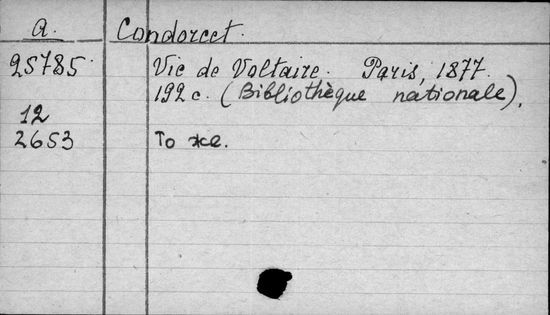 A. Condorcet.
25785. Vie de Voltaire. Paris, 1877.
192 c. (Bibliothèque nationale).
12
2653 То же.